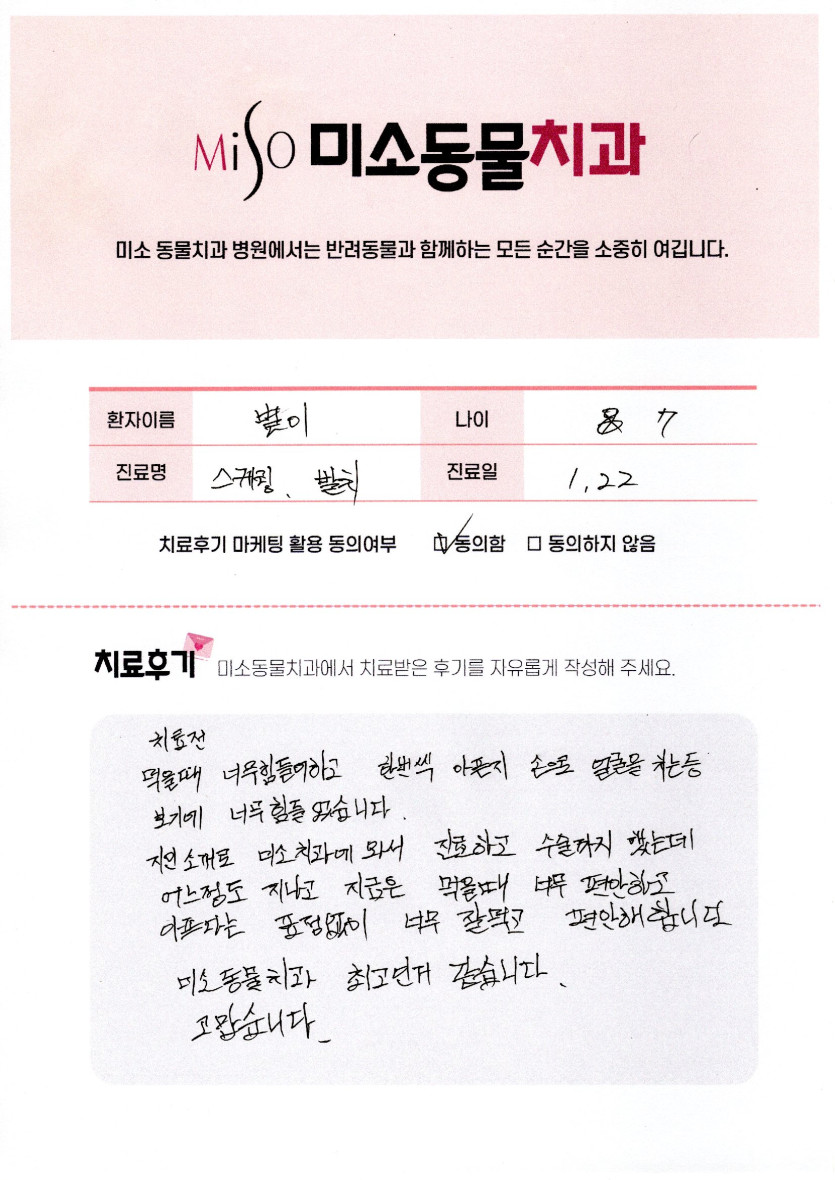 MiSO 미소동물치과
미소 동물치과 병원에서는 반려동물과 함께하는 모든 순간을 소중히 여깁니다.
환자이름 별이 나이 7
진료명 스케링, 발치 진료일 1.22
치료후기 마케팅 활용 동의여부 ☑ 동의함 □ 동의하지 않음
치료후기 미소동물치과에서 치료받은 후기를 자유롭게 작성해 주세요.
치료전
먹을때 너무힘들어하고 한번씩 아픈지 손으로 얼굴을 치는등
보기에 너무 힘들었습니다.
지인 소개로 미소치과에 와서 진료하고 수술까지 했는데
어느정도 지나고 지금은 먹을때 너무 편안하고
아프다는 표정없이 너무 잘먹고 편안해 합니다
미소동물치과 최고인거 같습니다.
고맙습니다